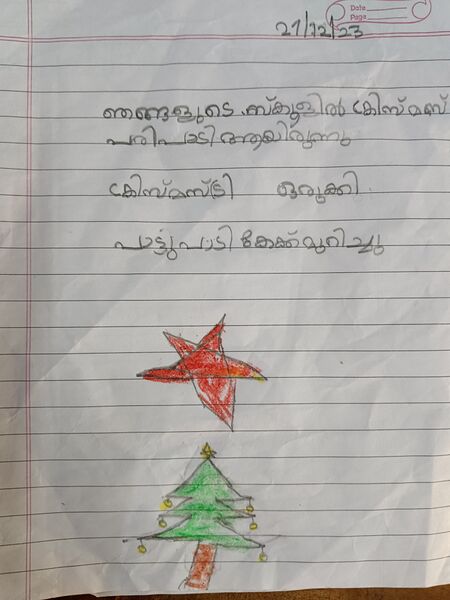 Date
Page
21/12/23
ഞങ്ങളുടെ സ്കൂളിൽ ക്രിസ്മസ്
പരിപാടി ആയിരുന്നു
ക്രിസ്മസ്ട്രീ ഒരുക്കി.
പാട്ടുപാടി കേക്ക് മുറിച്ചു